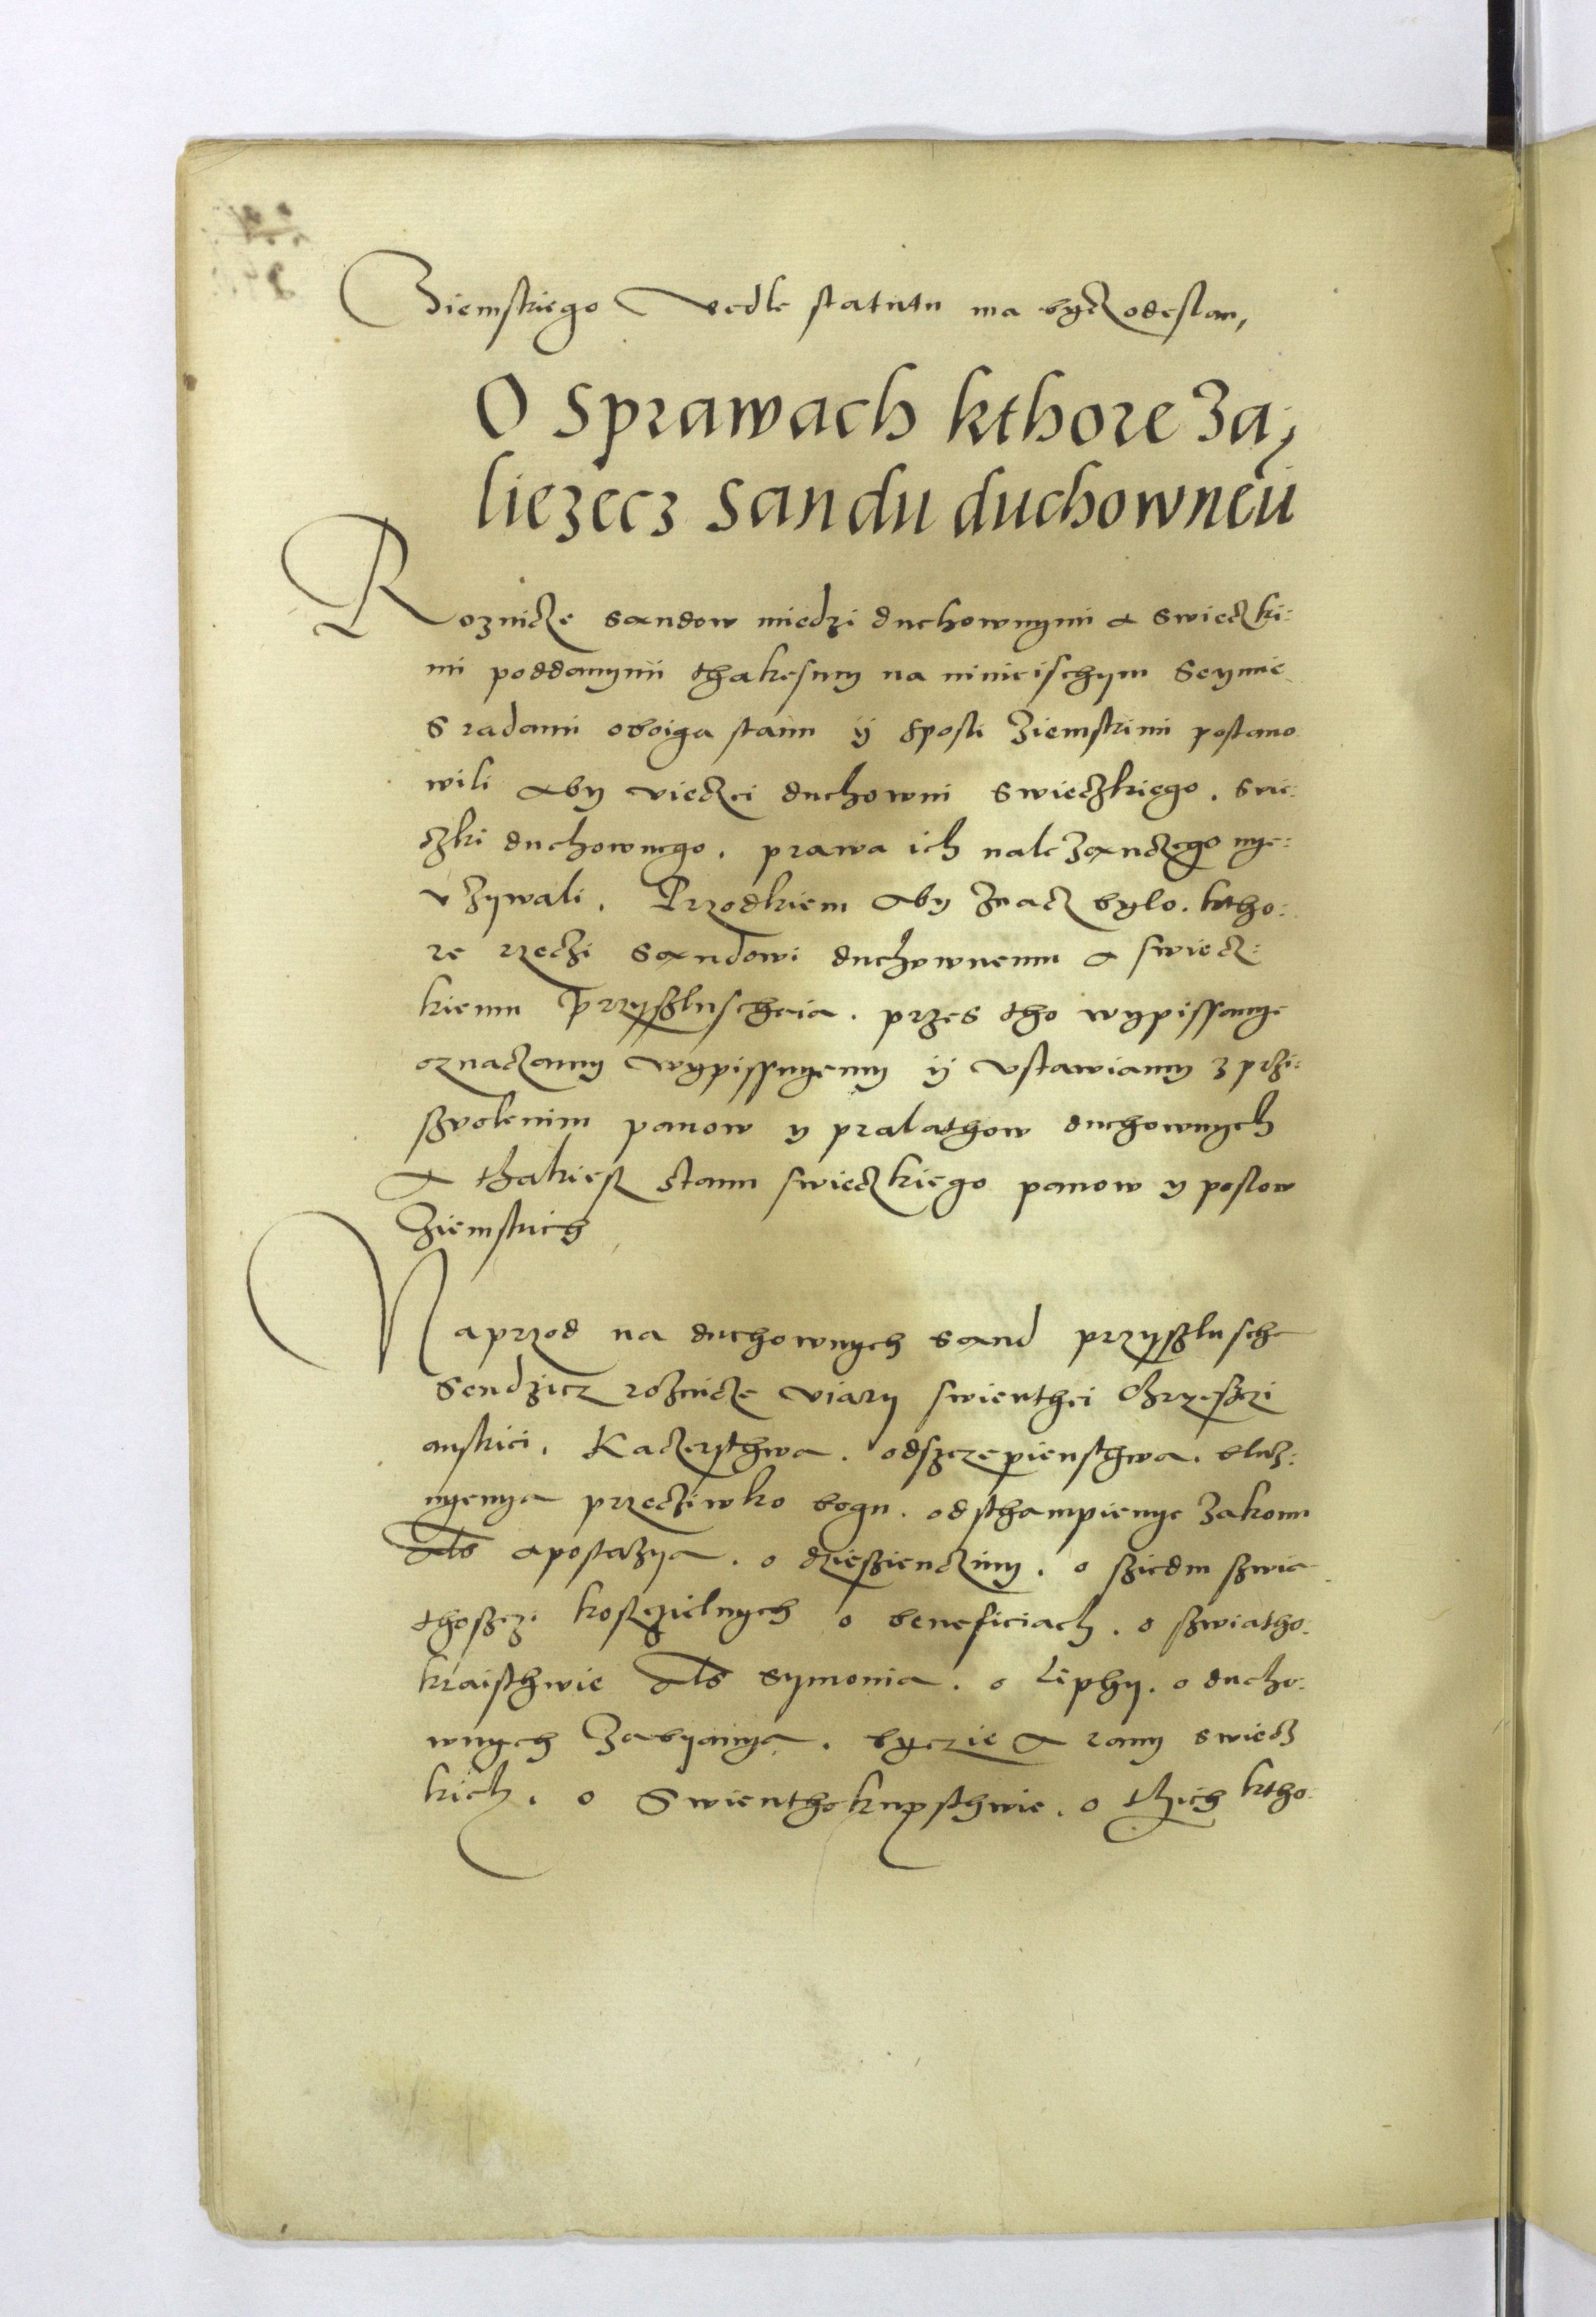 Ziemskiego Vedle statutu ma bycz odeslan,
O sprawach kthore za,
liezecz sandu duchowneu
Roznicze sandow miedzi duchownymi a swieczki:
mi poddanymi thakesmy na ninieischym Seymie
s radami oboiga stanu ÿ sposli Ziemskimi postano
wili aby vieczci duchowni swieczkiego. swie:
czki duchownego. prawa ich nalezanczego nye:
vzywali. Przodkiem aby znacz bylo. ktho:
re rzeczi sandowi duchownemu a swiecz:
kiemu przyszluscheia. przes tho wypissanye
oznaczamy wypissuyemy ÿ vstawiamy z przi:
szvolenim panow y pralathow duchownych
a thakiesz stanu swieczkiego panow y poslow
Ziemskich
Naprzod na duchownych sand przyszlusche
sendzicz roznicze viary swienthei Chrzesczi
anskiei. Kaczersthwa. odszczepiensthwa. bluz:
nyenya przecziwko bogu. odsthampienye zakonu
als apostazya. o dziesziencziny. o sziedm szwia
thosczi kosczielnych o beneficiach. o szwiatho:
kraisthwie als symonia. o liphy. o ducho:
wnych zabyanya. byczie a rany swiecz
kich. o Swienthokupsthwie. o thich ktho: